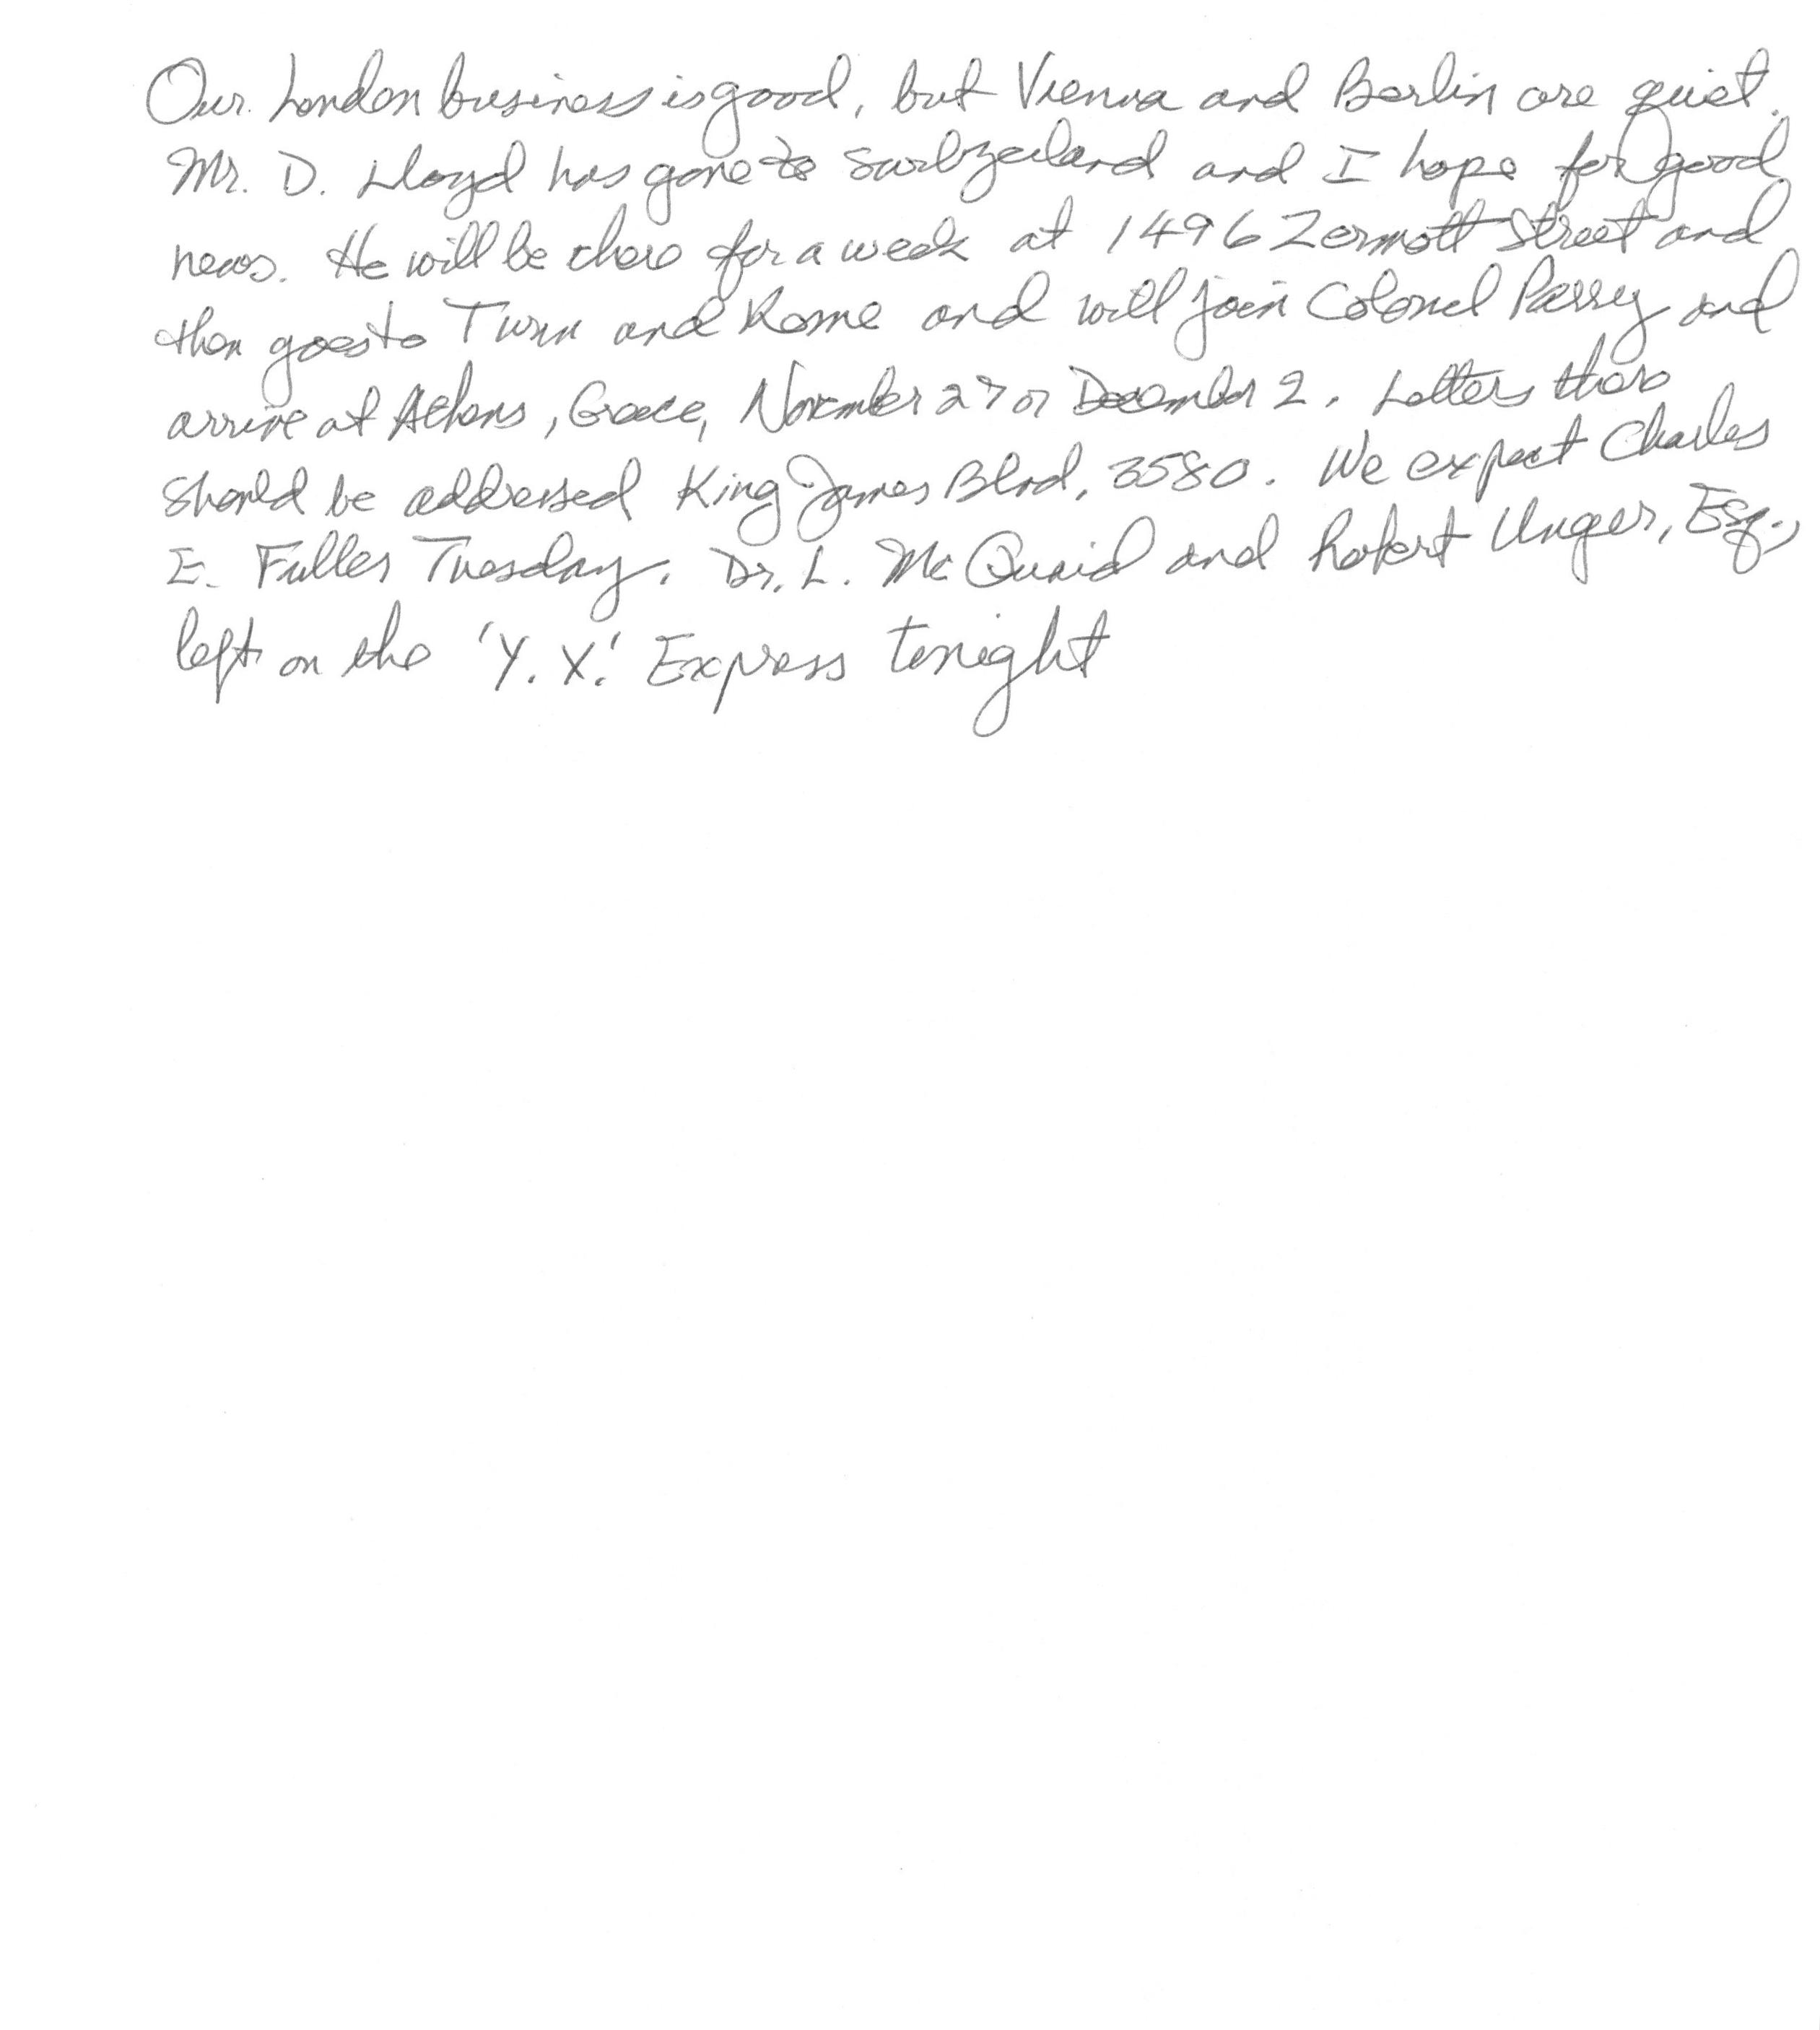 Our London business is good, but Vienna and Berlin are quiet.
Mr. D. Lloyd has gone to Switzerland and I hope for good
news. He will be there for a week at 1496 Zermott Street and
then goes to Turin and Rome and will join Colonel Parry and
arrive at Athens, Greece, November 27 or December 2. Letters there
should be addressed King James Blvd, 3580. We expect Charles
E. Fuller Tuesday. Dr. L. McQuaid and Robert Unger, Esq.,
left on the 'Y.X.' Express tonight